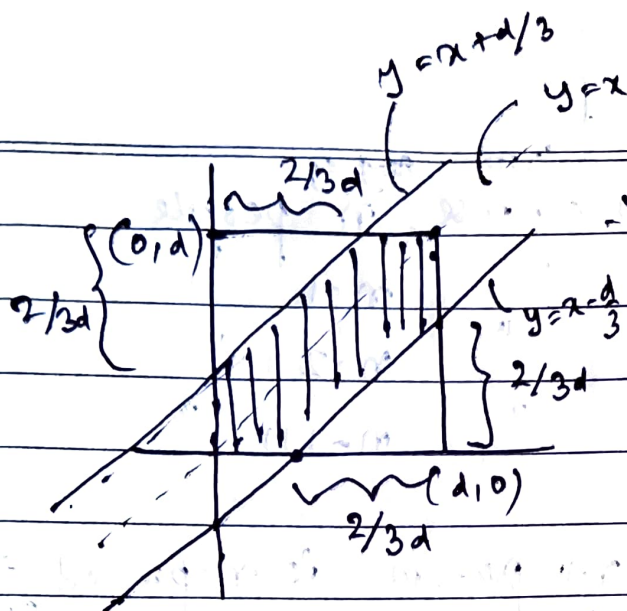 y = x + d/3
y = x
2/3d
(0, d)
2/3d
y = x - d/3
2/3d
(d, 0)
2/3d